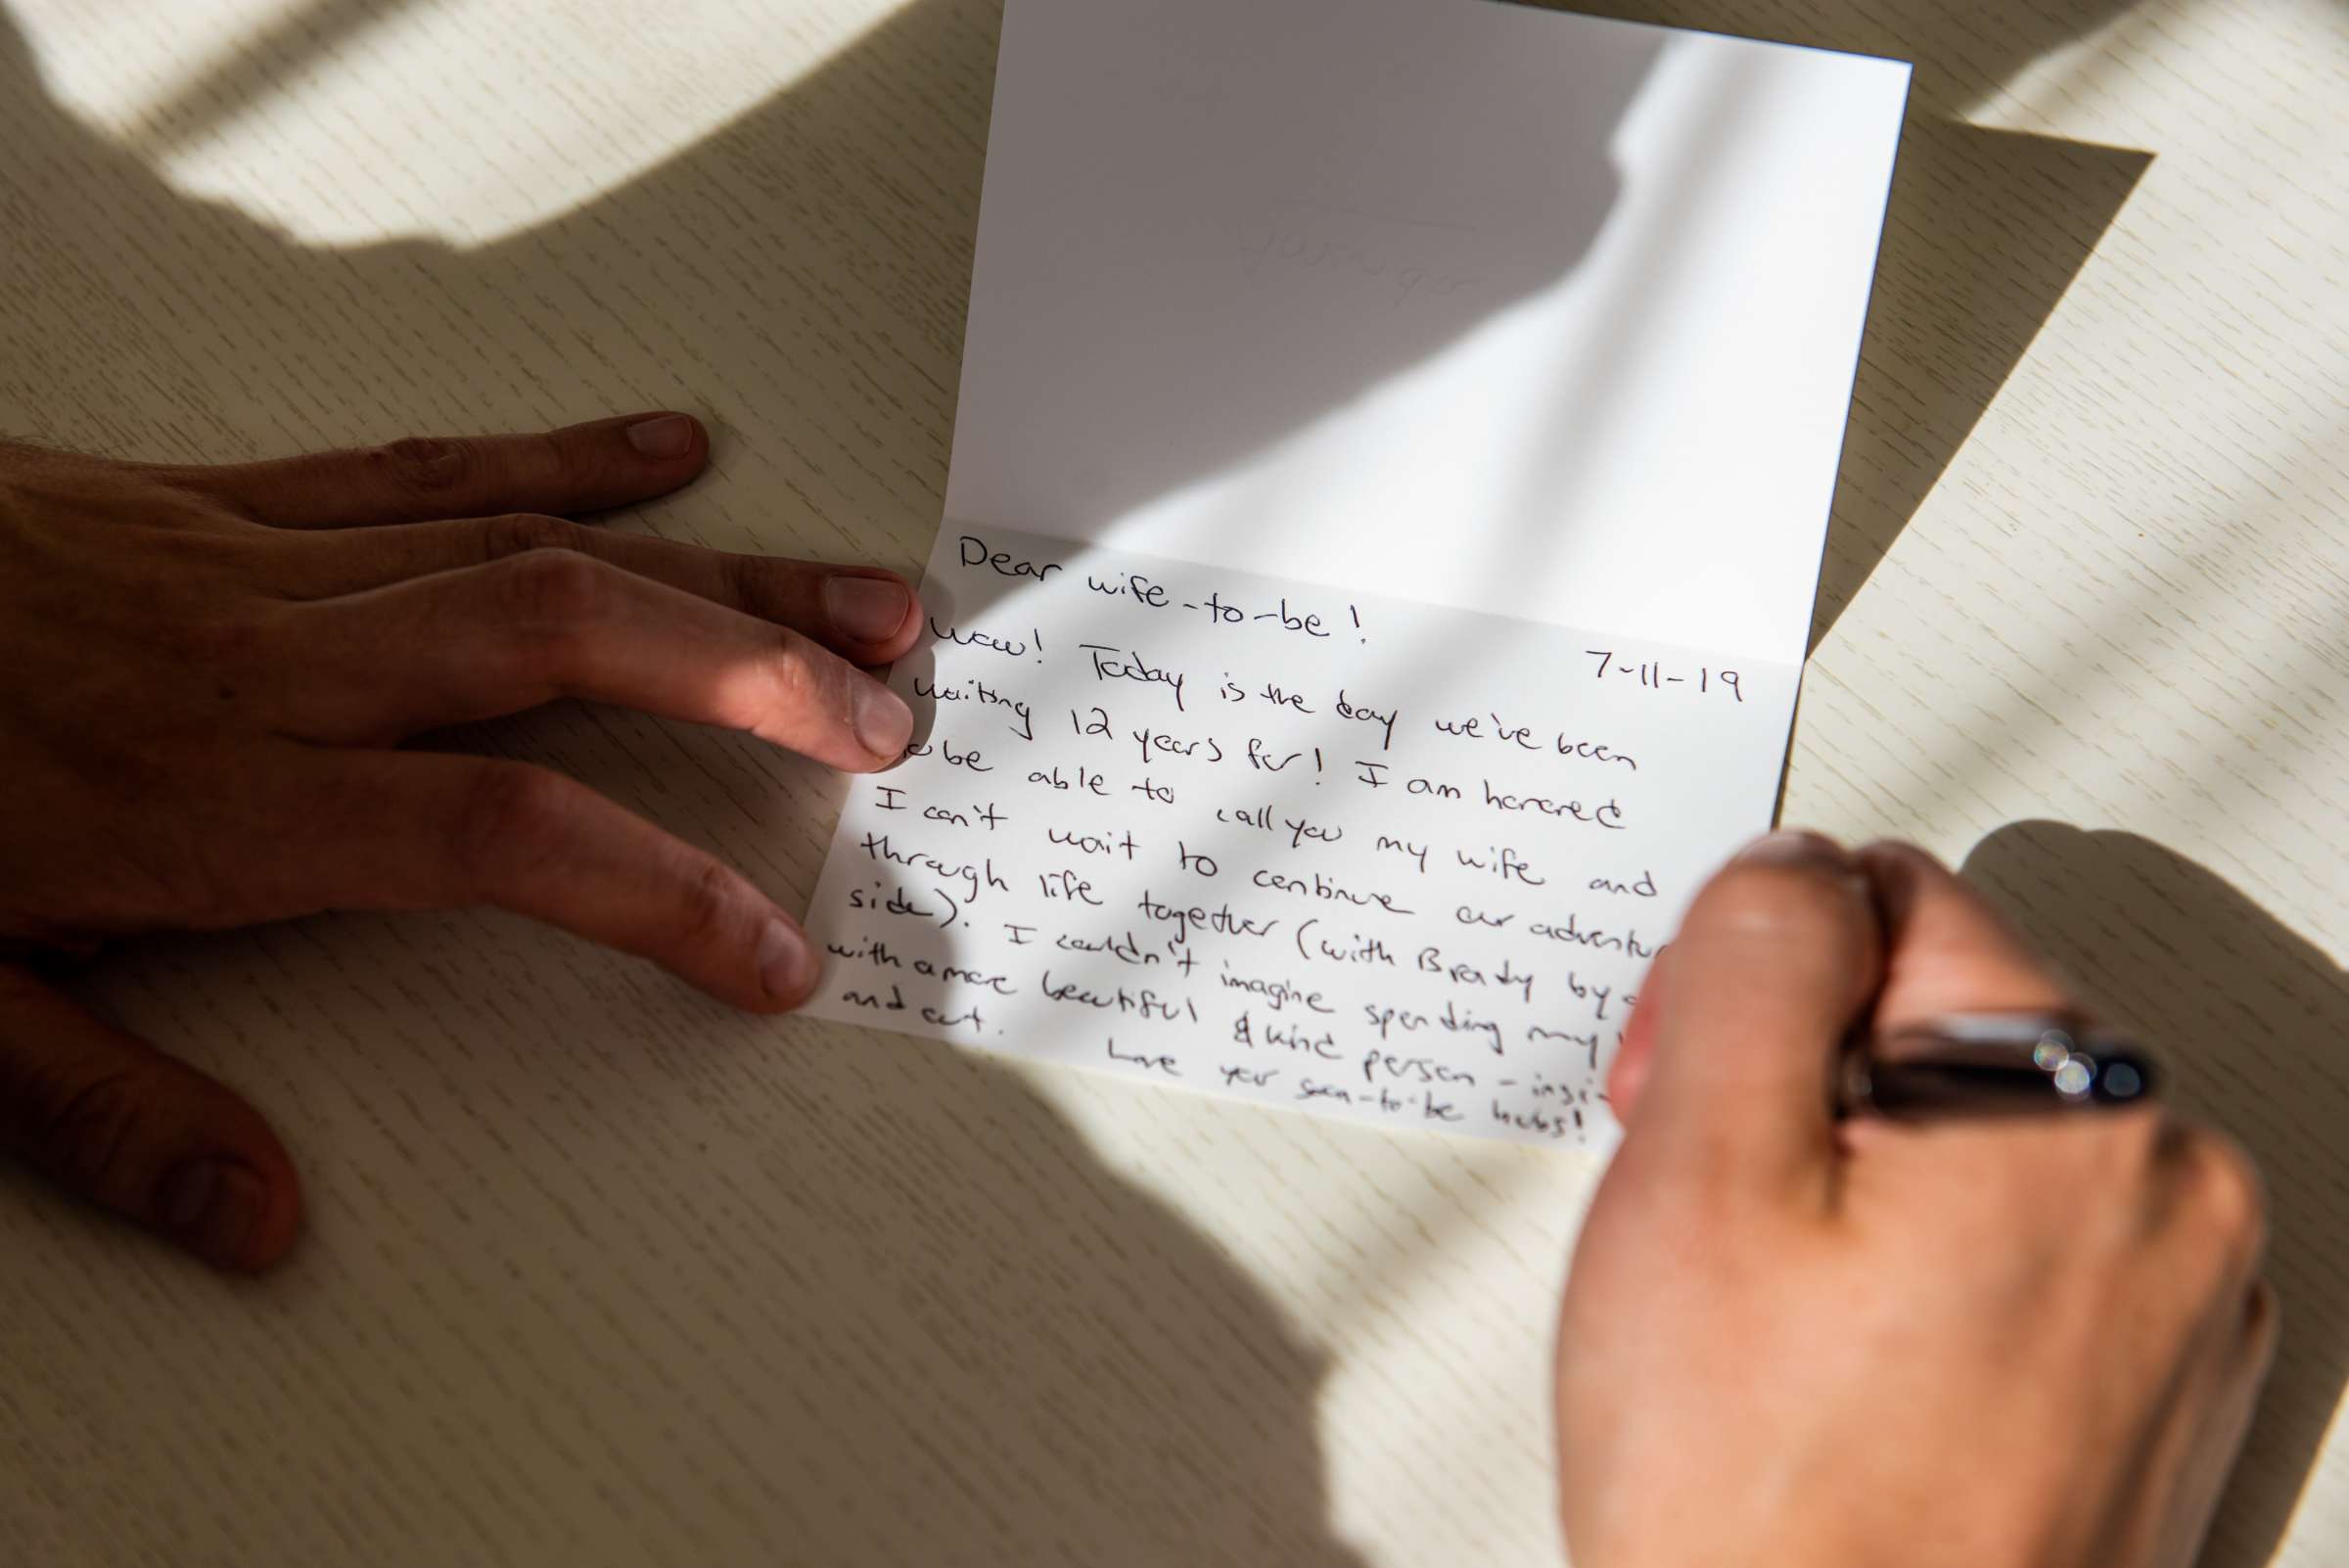 Dear wife-to-be!
7-11-19
Wow! Today is the day we've been
waiting 12 years for! I am honored
be able to call you my wife and
I can't wait to continue our
through life together (with Brady by
side). I couldn't imagine spending my
with a more beautiful & kind person -
and out.
Love your soon-to-be hubs!